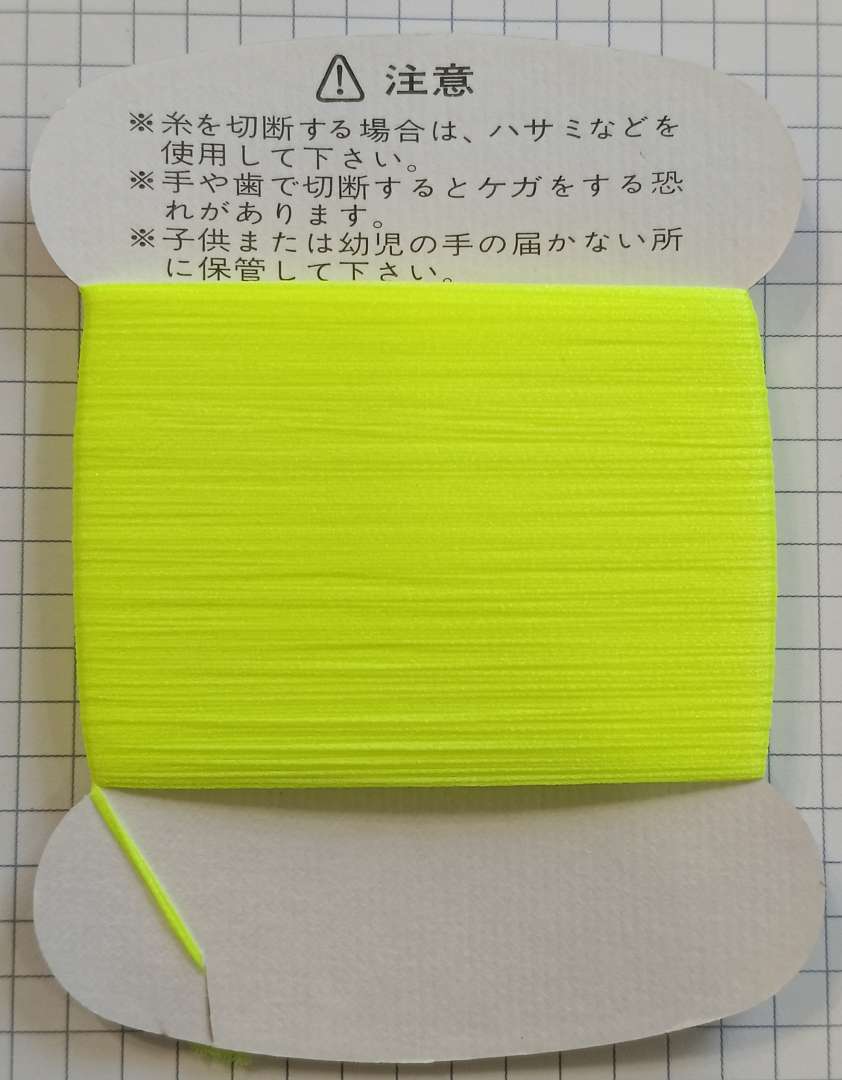 ⚠ 注意
※糸を切断する場合は、ハサミなどを
使用して下さい。
※手や歯で切断するとケガをする恐
れがあります。
※子供または幼児の手の届かない所
に保管して下さい。